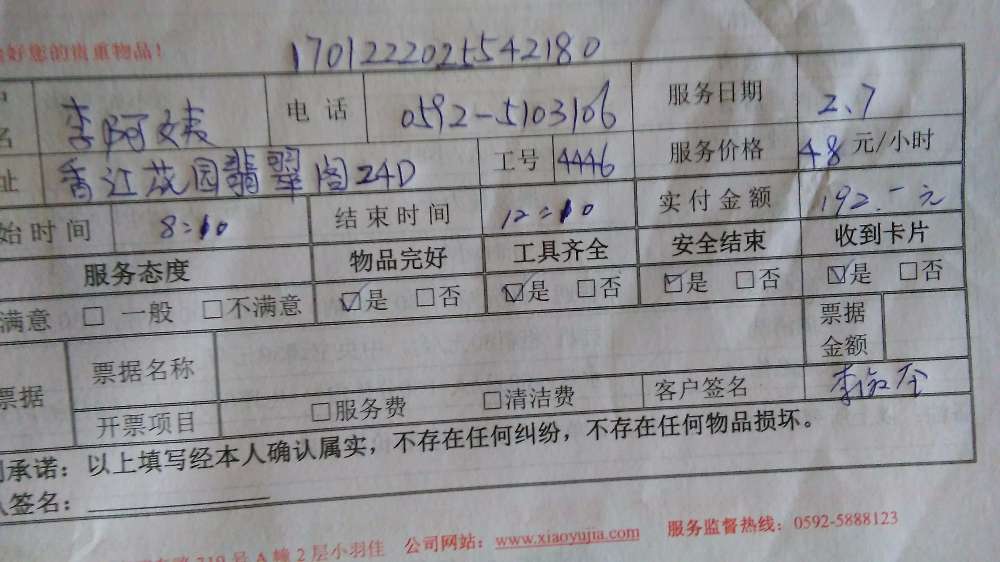 好您的贵重物品！
1701222025542180
名 李阿姨 电话 0592-5103106 服务日期 2.7
址 香江花园翡翠阁24D 工号 4446 服务价格 48 元/小时
始时间 8:10 结束时间 12:10 实付金额 192.- 元
服务态度 物品完好 工具齐全 安全结束 收到卡片
满意 □ 一般 □不满意 ☑是 □否 ☑是 □否 ☑是 □否 ☑是 □否
票据 票据名称 票据金额
开票项目 □服务费 □清洁费 客户签名
承诺：以上填写经本人确认属实，不存在任何纠纷，不存在任何物品损坏。
人签名：
719号A幢2层小羽佳 公司网站：www.xiaoyujia.com 服务监督热线：0592-5888123